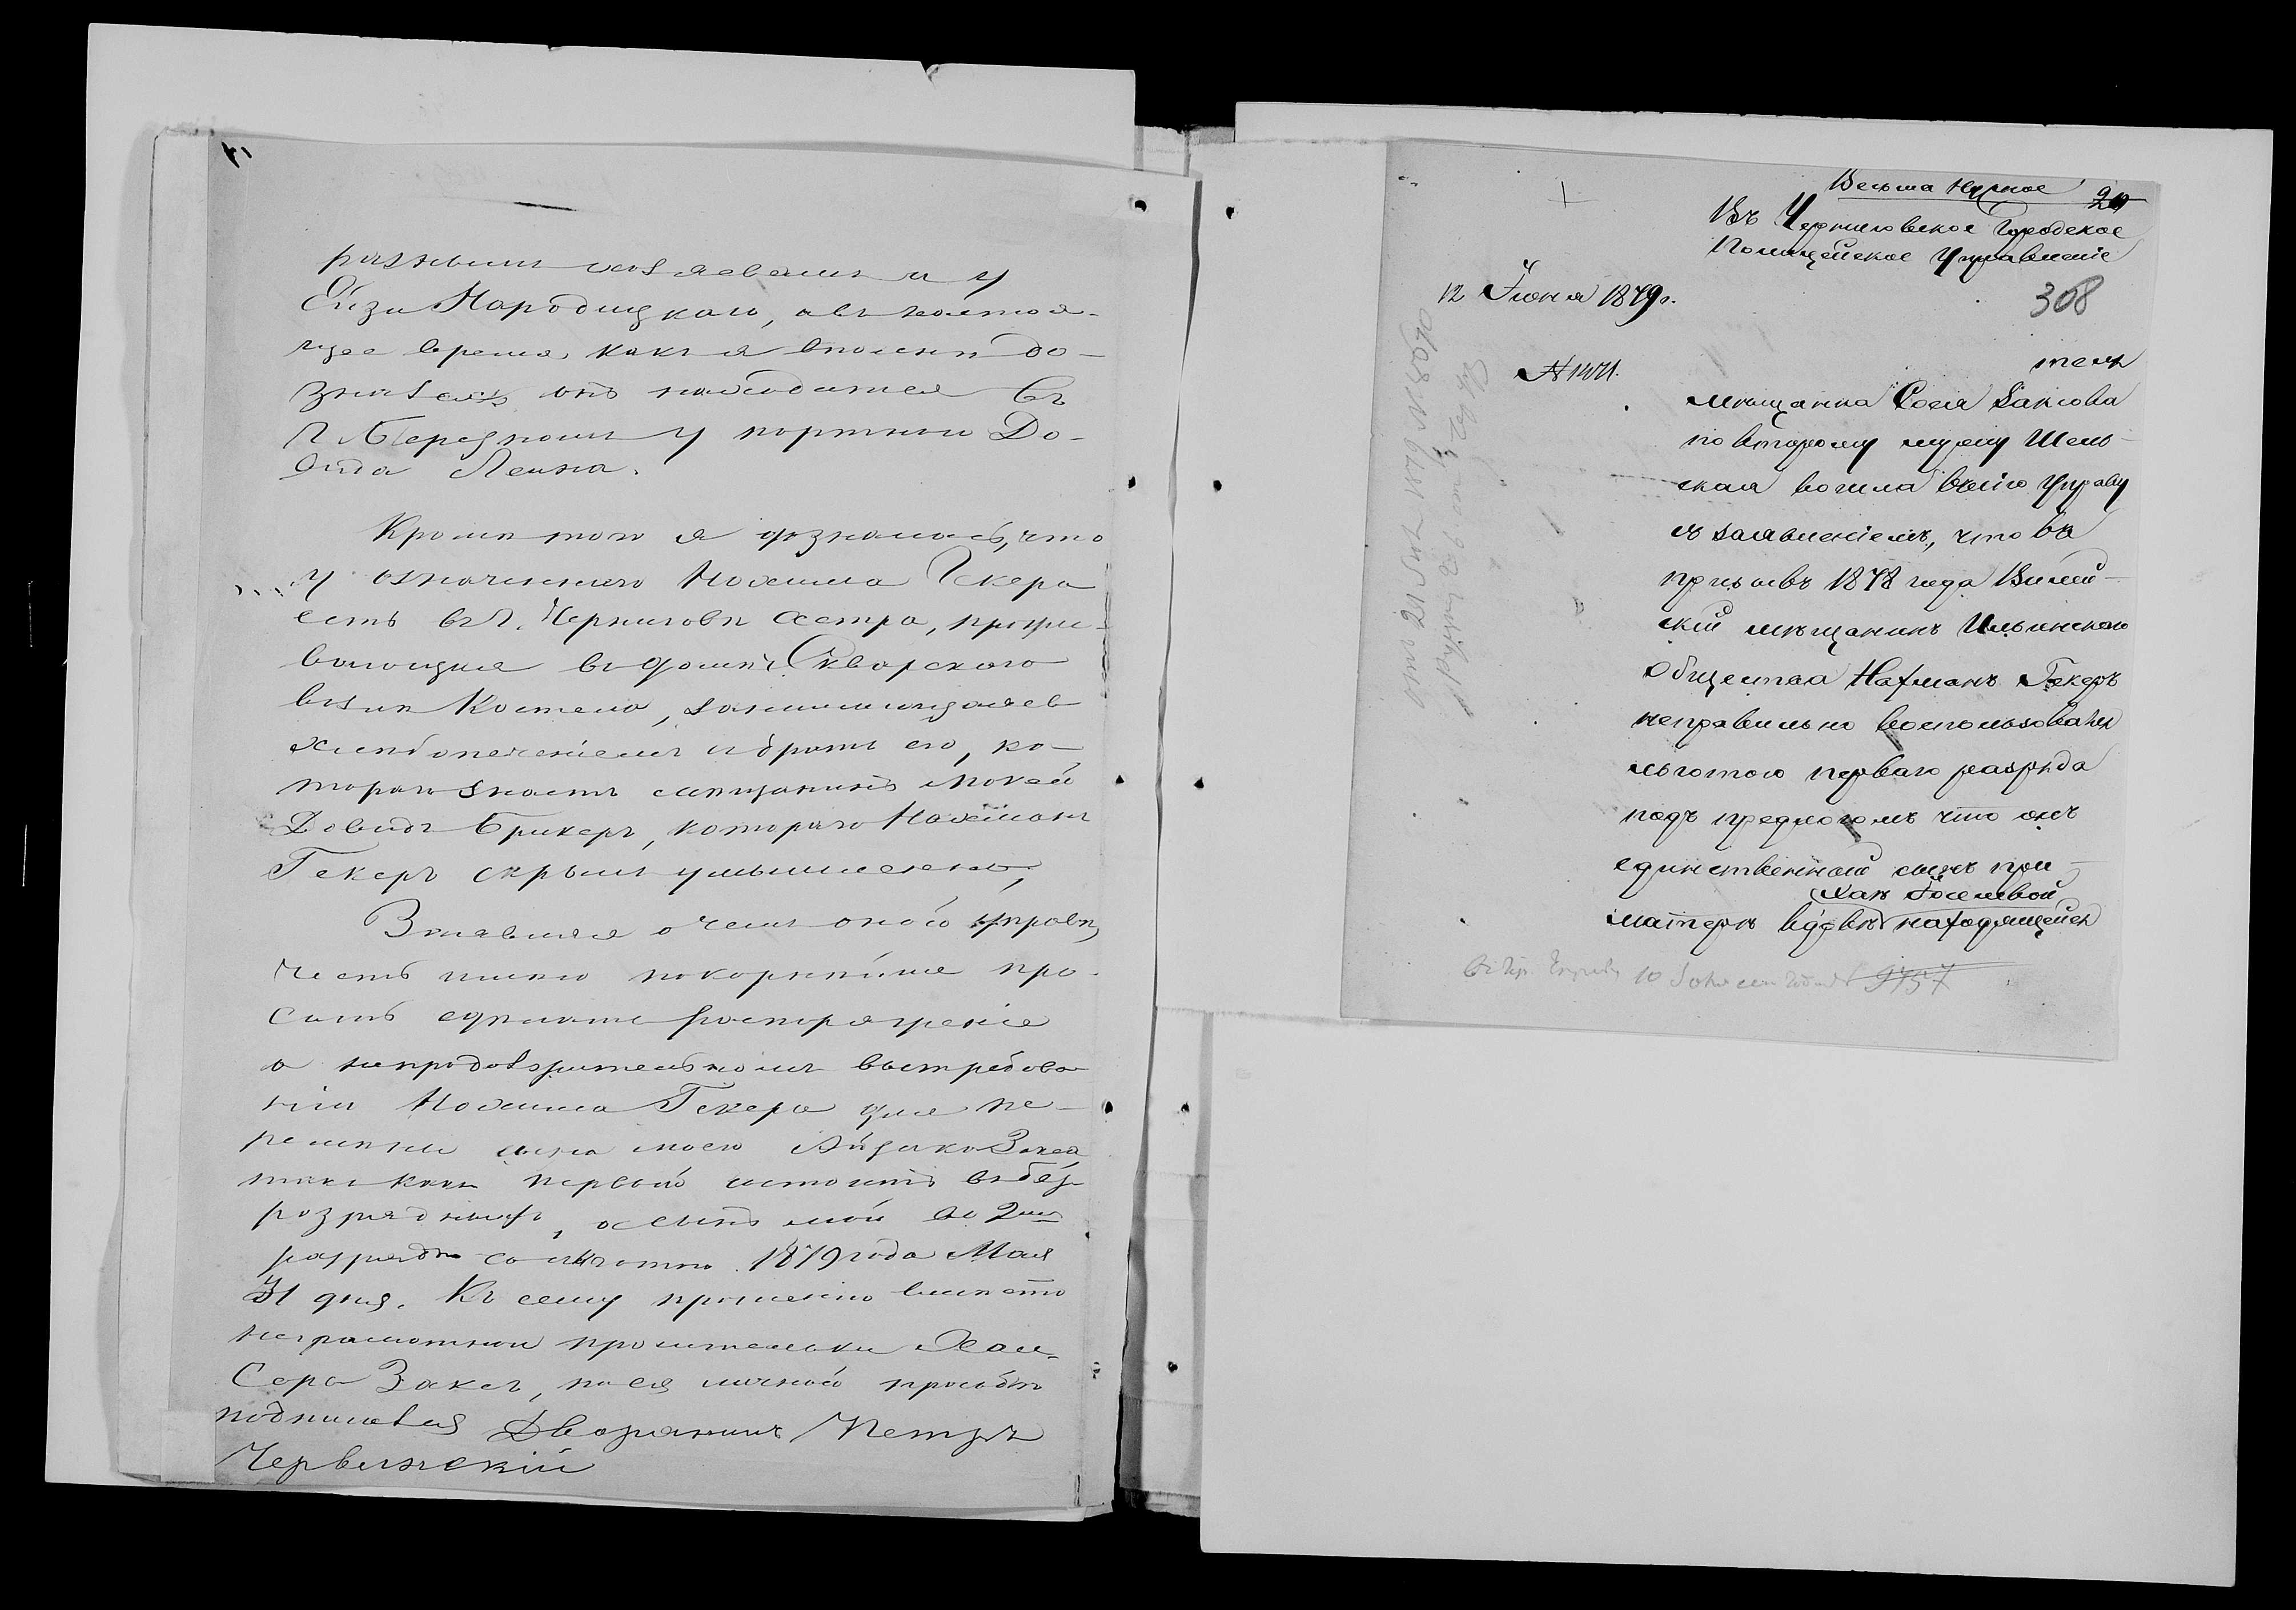 разными хозяевами и у
Ейзи Народицкаго, а въ настоя-
щее время, какъ я вполнѣ до-
зналась онъ находится въ
г. Бердянскѣ у портнаго До-
вида Леина.
Кромѣ того я дозналась, что
у означеннаго Нахима Гекера
есть въ г. Черниговѣ сестра, прожи-
вающая въ домѣ Скварскаго
возлѣ Костела, занимающаяся
хлѣбопеченіемъ и братъ его, ко-
тораго знаетъ мѣщанинъ Мокей
Довидъ Брикеръ, котораго Нахманъ
Гекеръ скрылъ умышленно,
Заявляя о чемъ оной управѣ,
честь имѣю покорнѣйше про-
сить сдѣлать распоряженіе
о непродолжительномъ вытребова-
ніи Нахима Гекера для пе-
ремѣны сына моего Айзика Закса
такъ какъ первый состоитъ въ без-
розрядныхъ, а сынъ мой во 2мъ
разрядѣ со льготою. 1879 года Мая
31 дня. Къ сему прошенію вмѣсто
неграмотной просительки Хаи-
Сора Заксъ, по ея личной просьбѣ
подписался Дворянинъ Петръ
Червинскій
Весьма нужное
20
Въ Черниговское Городское
Полицейское Управленіе
12 Іюня 1879 г.
308
№ 1471.
мѣщанка Сося Заксова
по второму мужу Шель-
ская вошла въ сію Управу
съ заявленіемъ, что въ
призывъ 1878 года Вилен-
скій мѣщанинъ Ильинскаго
Общества Нахманъ Гекеръ
неправильно воспользовался
льготою перваго разряда
подъ предлогомъ что онъ
единственный сынъ при
Хаѣ Йоселевой
матери вдовѣ находящейся
9757